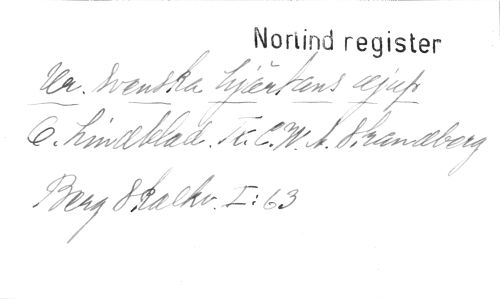 Norlind register
Ur Svenska hjärtans djup
O. Lindblad. T. C.W.A. Strandberg
Berg Skalkv. I:63